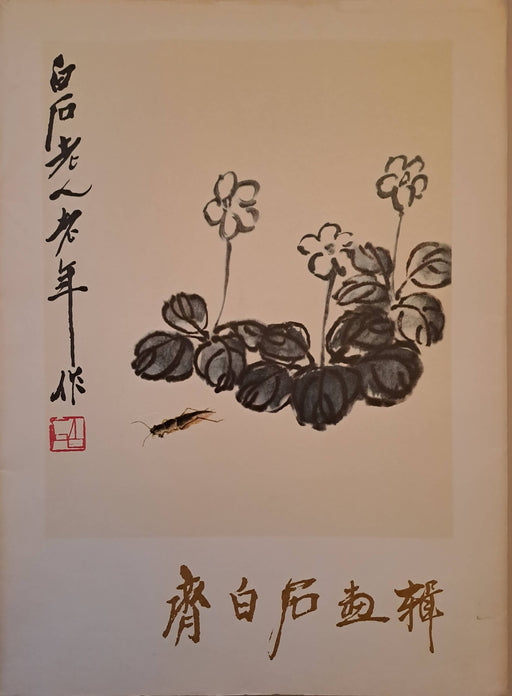 白石老人老年作
齊白石画輯